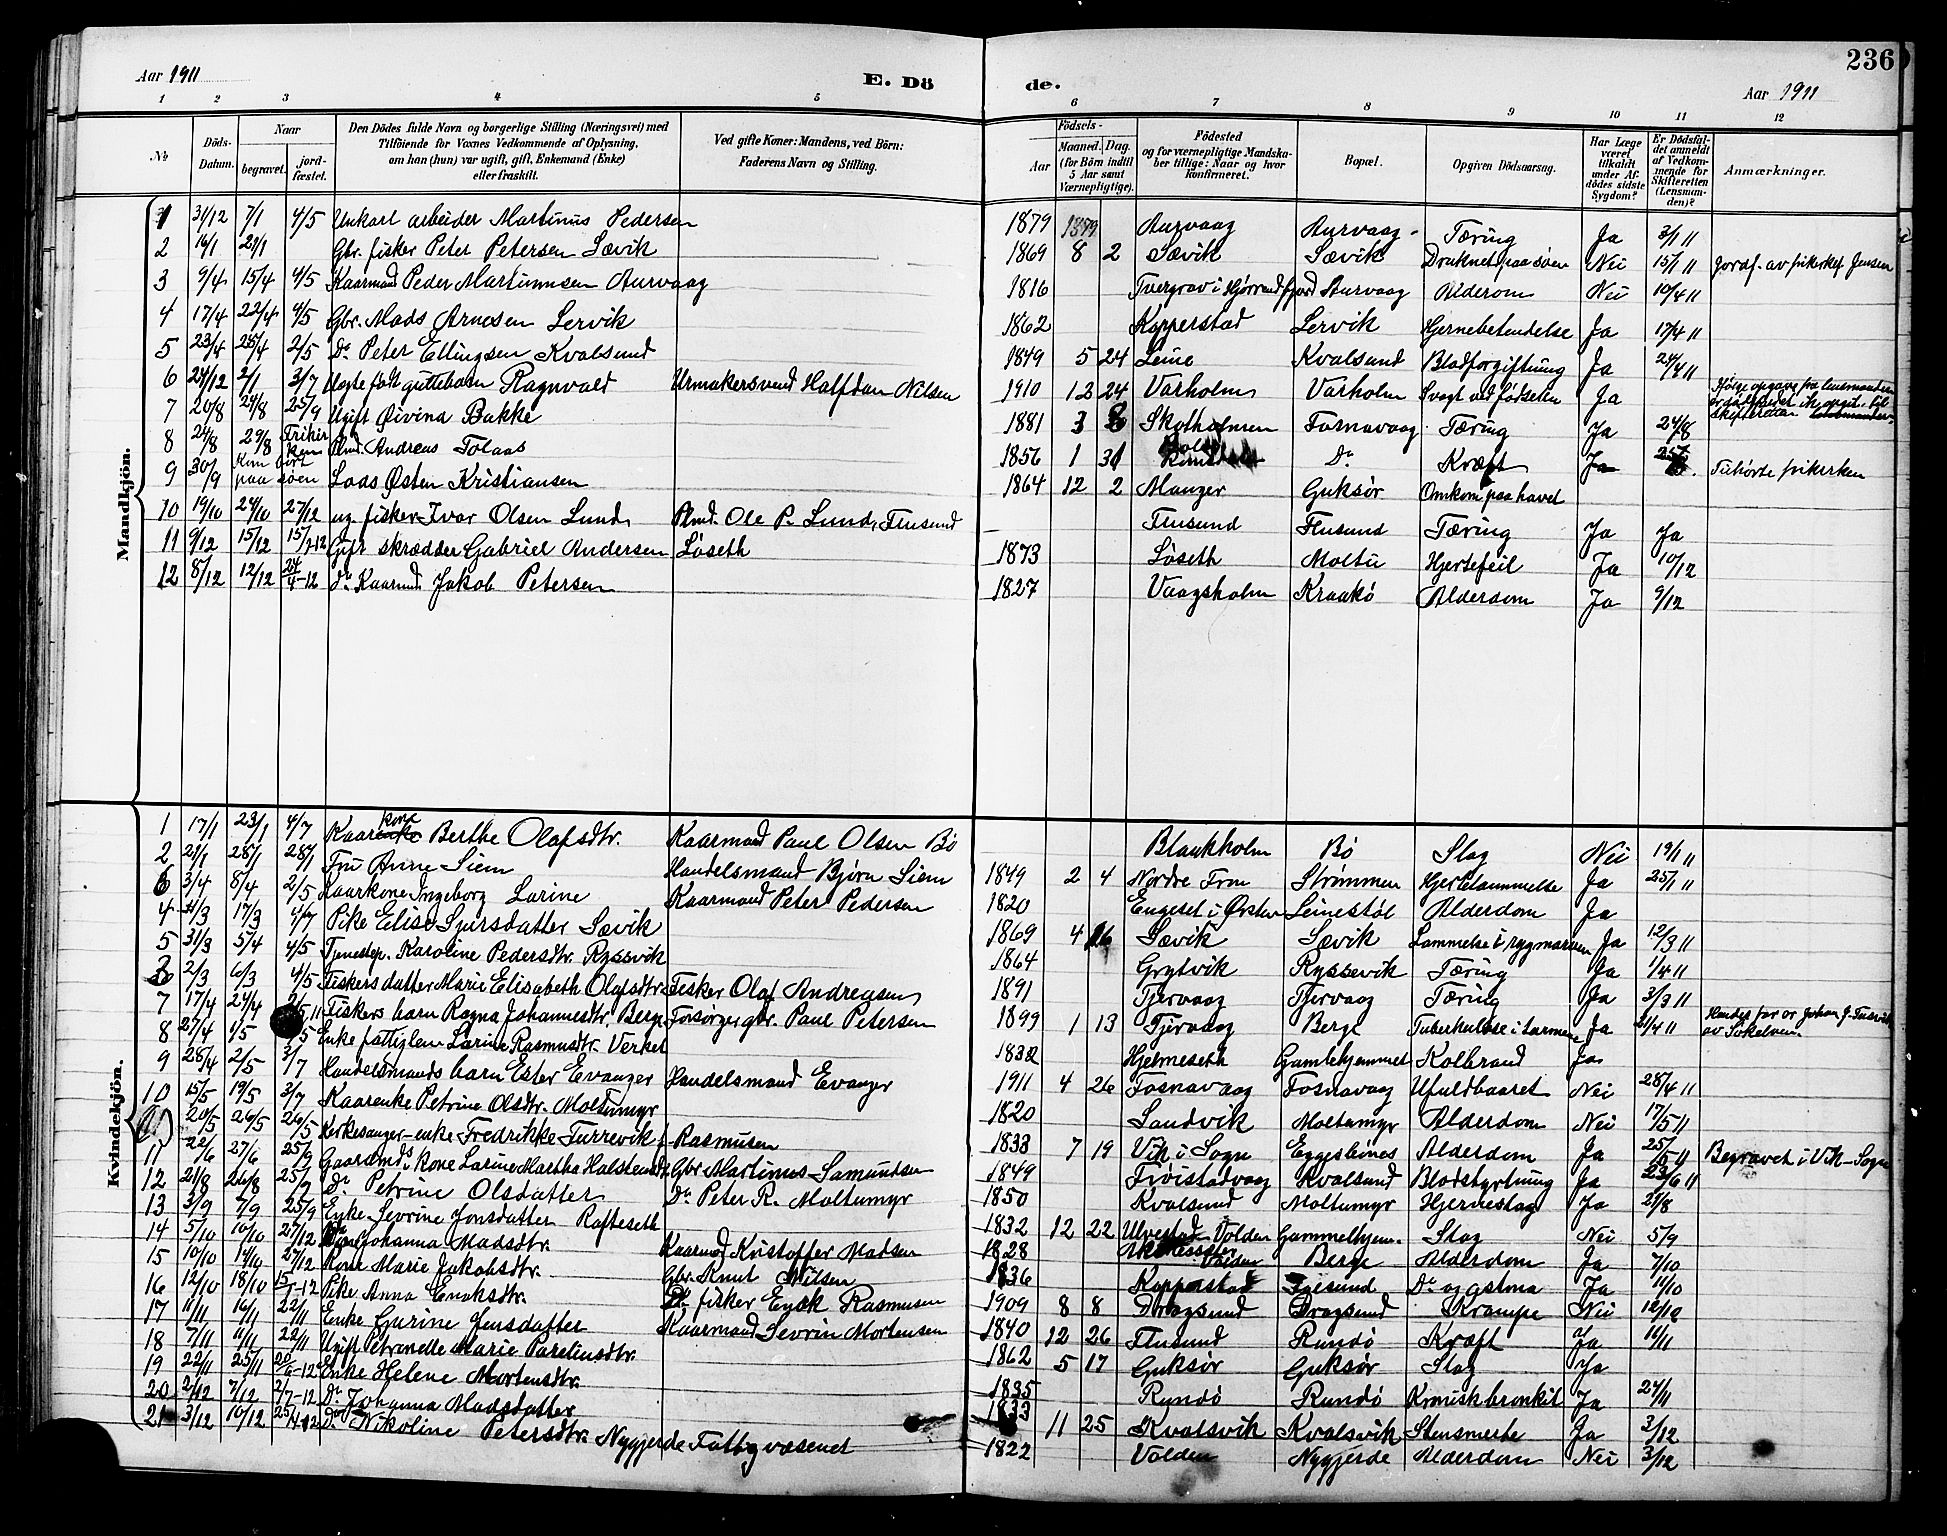 236
Aar 1911
E. Dö
de.
Aar 1911
1 2 3 4 5
6 7 8 9 10 11 12
No
Döds-
Datum.
Naar
begravet.
jord-
fæstet.
Den Dödes fulde Navn og borgerlige Stilling (Næringsvei) med
Tilföiende for Voxnes Vedkommende af Oplysning,
om han (hun) var ugift, gift, Enkemand (Enke)
eller fraskilt.
Ved gifte Koner: Mandens, ved Börn:
Faderens Navn og Stilling.
Födsels-
Aar
Maaned.
Dag.
(for Börn indtil
5 Aar samt
Værnepligtige).
Födested
og for værnepligtige Mandska-
ber tillige: Naar og hvor
konfirmeret.
Bopæl.
Opgiven Dödsaarsag.
Har Læge
været
tilkaldt
under Af-
dödes sidste
Sygdom?
Er Dödsfal-
det anmeldt
af Vedkom-
mende for
Skifteretten
(Lensman-
den)?
Anmærkninger.
Mandkjön.
1 31/12 7/1 4/5 Unkarl arbeider Martinus Pedersen 1879 Aurvaag Aurvaag Tæring Ja 3/1 11
2 16/1 22/1 Gbr. fisker Peter Petersen Sævik 1869 8 2 Sævik Sævik Druknet paa söen Nei 15/1 11 Jordf. av frikirkef. Jensen
3 9/4 15/4 4/5 Kaarmand Peder Martinusen Aurvaag 1816 Tvergrov i Hjørrendfjord Aurvaag Alderdom Nei 10/4 11
4 17/4 22/4 4/5 Gbr. Mads Arnesen Lervik 1862 Kopperstad Lervik Hjernebetendelse Ja 17/4 11
5 23/4 28/4 2/5 Do Peter Ellingsen Kvalsund 1849 5 24 Leine Kvalsund Blodforgiftning Ja 24/4 11
6 24/12 2/1 3/7 Uegte født guttebarn Ragnvald Urmakersvend Halfdan Nilsen 1910 12 24 Varholm Varholm Svagt ved fødselen Ja
7 20/8 24/8 25/9 Ugift Øivina Bakke 1881 3 Skotholmen Fosnavaag Tæring Ja 24/8
8 24/8 29/8 Frikirken Plmd. Andreas Tolaas 1856 1 31 Do Kræft Ja Tilhörte frikirken
9 30/9 Kom bort paa söen Lods Østen Kristiansen 1864 12 2 Manger Guksör Omkom paa havet
10 19/10 24/10 27/12 ug. fisker Ivar Olsen Lund Plmd. Ole P. Lund, Flusund Flusund Flusund Tæring Ja Ja
11 9/12 15/12 15/2-12 Gift skrædder Gabriel Andersen Løseth 1873 Løseth Moltu Hjertefeil Ja 10/12
12 8/12 12/12 24/4-12 Do Kaarmd. Jakob Petersen 1827 Vaagsholm Kraakö Alderdom Ja 9/12
Kvindekjön.
1 17/1 23/1 4/7 Kaarkone Berthe Olafsdtr. Kaarmand Paul Olsen Bö Blankholm Bö Slag Nei 19/1 11
2 21/1 28/1 28/1 Fru Anne Siem Handelsmand Björn Siem 1849 2 4 Nordre Fron Strömmen Hjertelammelse Ja 25/1 11
3/4 8/4 2/5 Kaarkone Ingeborg Larine Kaarmand Peter Pedersen 1820 Engeset i Ørsten Leinestöl Alderdom Ja
4 17/3 4/7 Pike Elise Sjursdatter Sævik 1869 4 16 Sævik Sævik Lammelse i rygmarven Ja 12/3 11
5 31/3 5/4 4/5 Tjenestep. Karoline Pedersdtr. Ryssvik 1864 Grytvik Ryssevik Tæring Ja 1/4 11
2/3 6/3 4/5 Fiskersdatter Marie Elisabeth Olafsdtr. Fisker Olaf Andreasen 1891 Tjervaag Tjervaag Tæring Ja 3/3 11
7 17/4 24/4 Fiskers barn Ragna Johannesdtr. Berge Forsørger gbr. Paul Petersen 1899 1 13 Tjervaag Berge Tuberkulose i tarmene Ja 21/4 11
8 27/4 1/5 Enke fattiglem Larine Rasmusdtr. Verket 1832 Hjelmeseth Gamlehjemmet Kolbrand Ja
9 28/4 2/5 3/7 Handelsmands barn Ester Evanger Handelsmand Evanger 1911 4 26 Fosnavaag Fosnavaag Ufuldbaaret Nei 28/4 11
10 15/5 19/5 3/7 Kaarenke Petrine Olsdtr. Moltumyr 1820 Sandvik Moltumyr Alderdom Nei 17/5 11
20/5 26/5 26/5 Kirkesanger-enke Fredrikke Turrevik f. Rasmusen 1833 7 19 Vik i Sogn Eggesbönes Alderdom Ja 25/5 11 Begravet i Vik-Sogn
11 22/6 27/6 25/9 Gaardmds. kone Larine Martha Halstensdtr. Gbr. Martinus Samundsen 1849 Fröistadvaag Kvalsund Blodstyrtning Ja 23/6 11
12 21/8 26/8 25/9 Do Petrine Olsdatter Do Peter R. Moltumyr 1850 Kvalsund Moltumyr Hjerneslag Ja 21/8
13 3/9 7/9 25/9 Enke Sevrine Jonsdatter Rafteseth 1832 12 22 Ulvestad Volden Gammelhjem. Slag Nei 5/9
14 5/10 10/10 27/12 Johanna Madsdtr. Kaarmd Kristoffer Madsen 1828 Volden Berge Alderdom Ja 7/10
15 10/10 14/10 27/12 Kone Marie Jakobsdtr. Gbr. Knut Nilsen 1836 Kopperstad Igesund Do og astma Ja 11/10
16 12/10 18/10 15/1-12 Pike Anna Eriksdtr. fisker Erik Rasmusen 1909 8 8 Dragsund Dragsund Krampe Nei 12/10
17 11/11 16/11 22/11 Enke Gurine Jensdatter Kaarmand Sevrin Mortensen 1840 12 26 Flusund Rundö Kræft Ja 16/11
18 7/11 11/11 22/11 Ugift Petrinelle Marie Pareliusdtr. 1862 5 17 Guksör Guksör Slag Ja
19 22/11 25/11 20/6-12 Enke Helene Mortensdtr. 1835 Rundö Rundö Kronisk bronkit Ja 24/11
20 2/12 7/12 2/7-12 Do Johanna Madsdatter 1833 11 25 Kvalsvik Kvalsvik Stensmerte Ja 3/12
21 3/12 10/12 25/4-12 Do Nikoline Petersdtr. Nygjerde Fattigvæsenet 1822 Volden Nygjerde Alderdom Nei 3/12